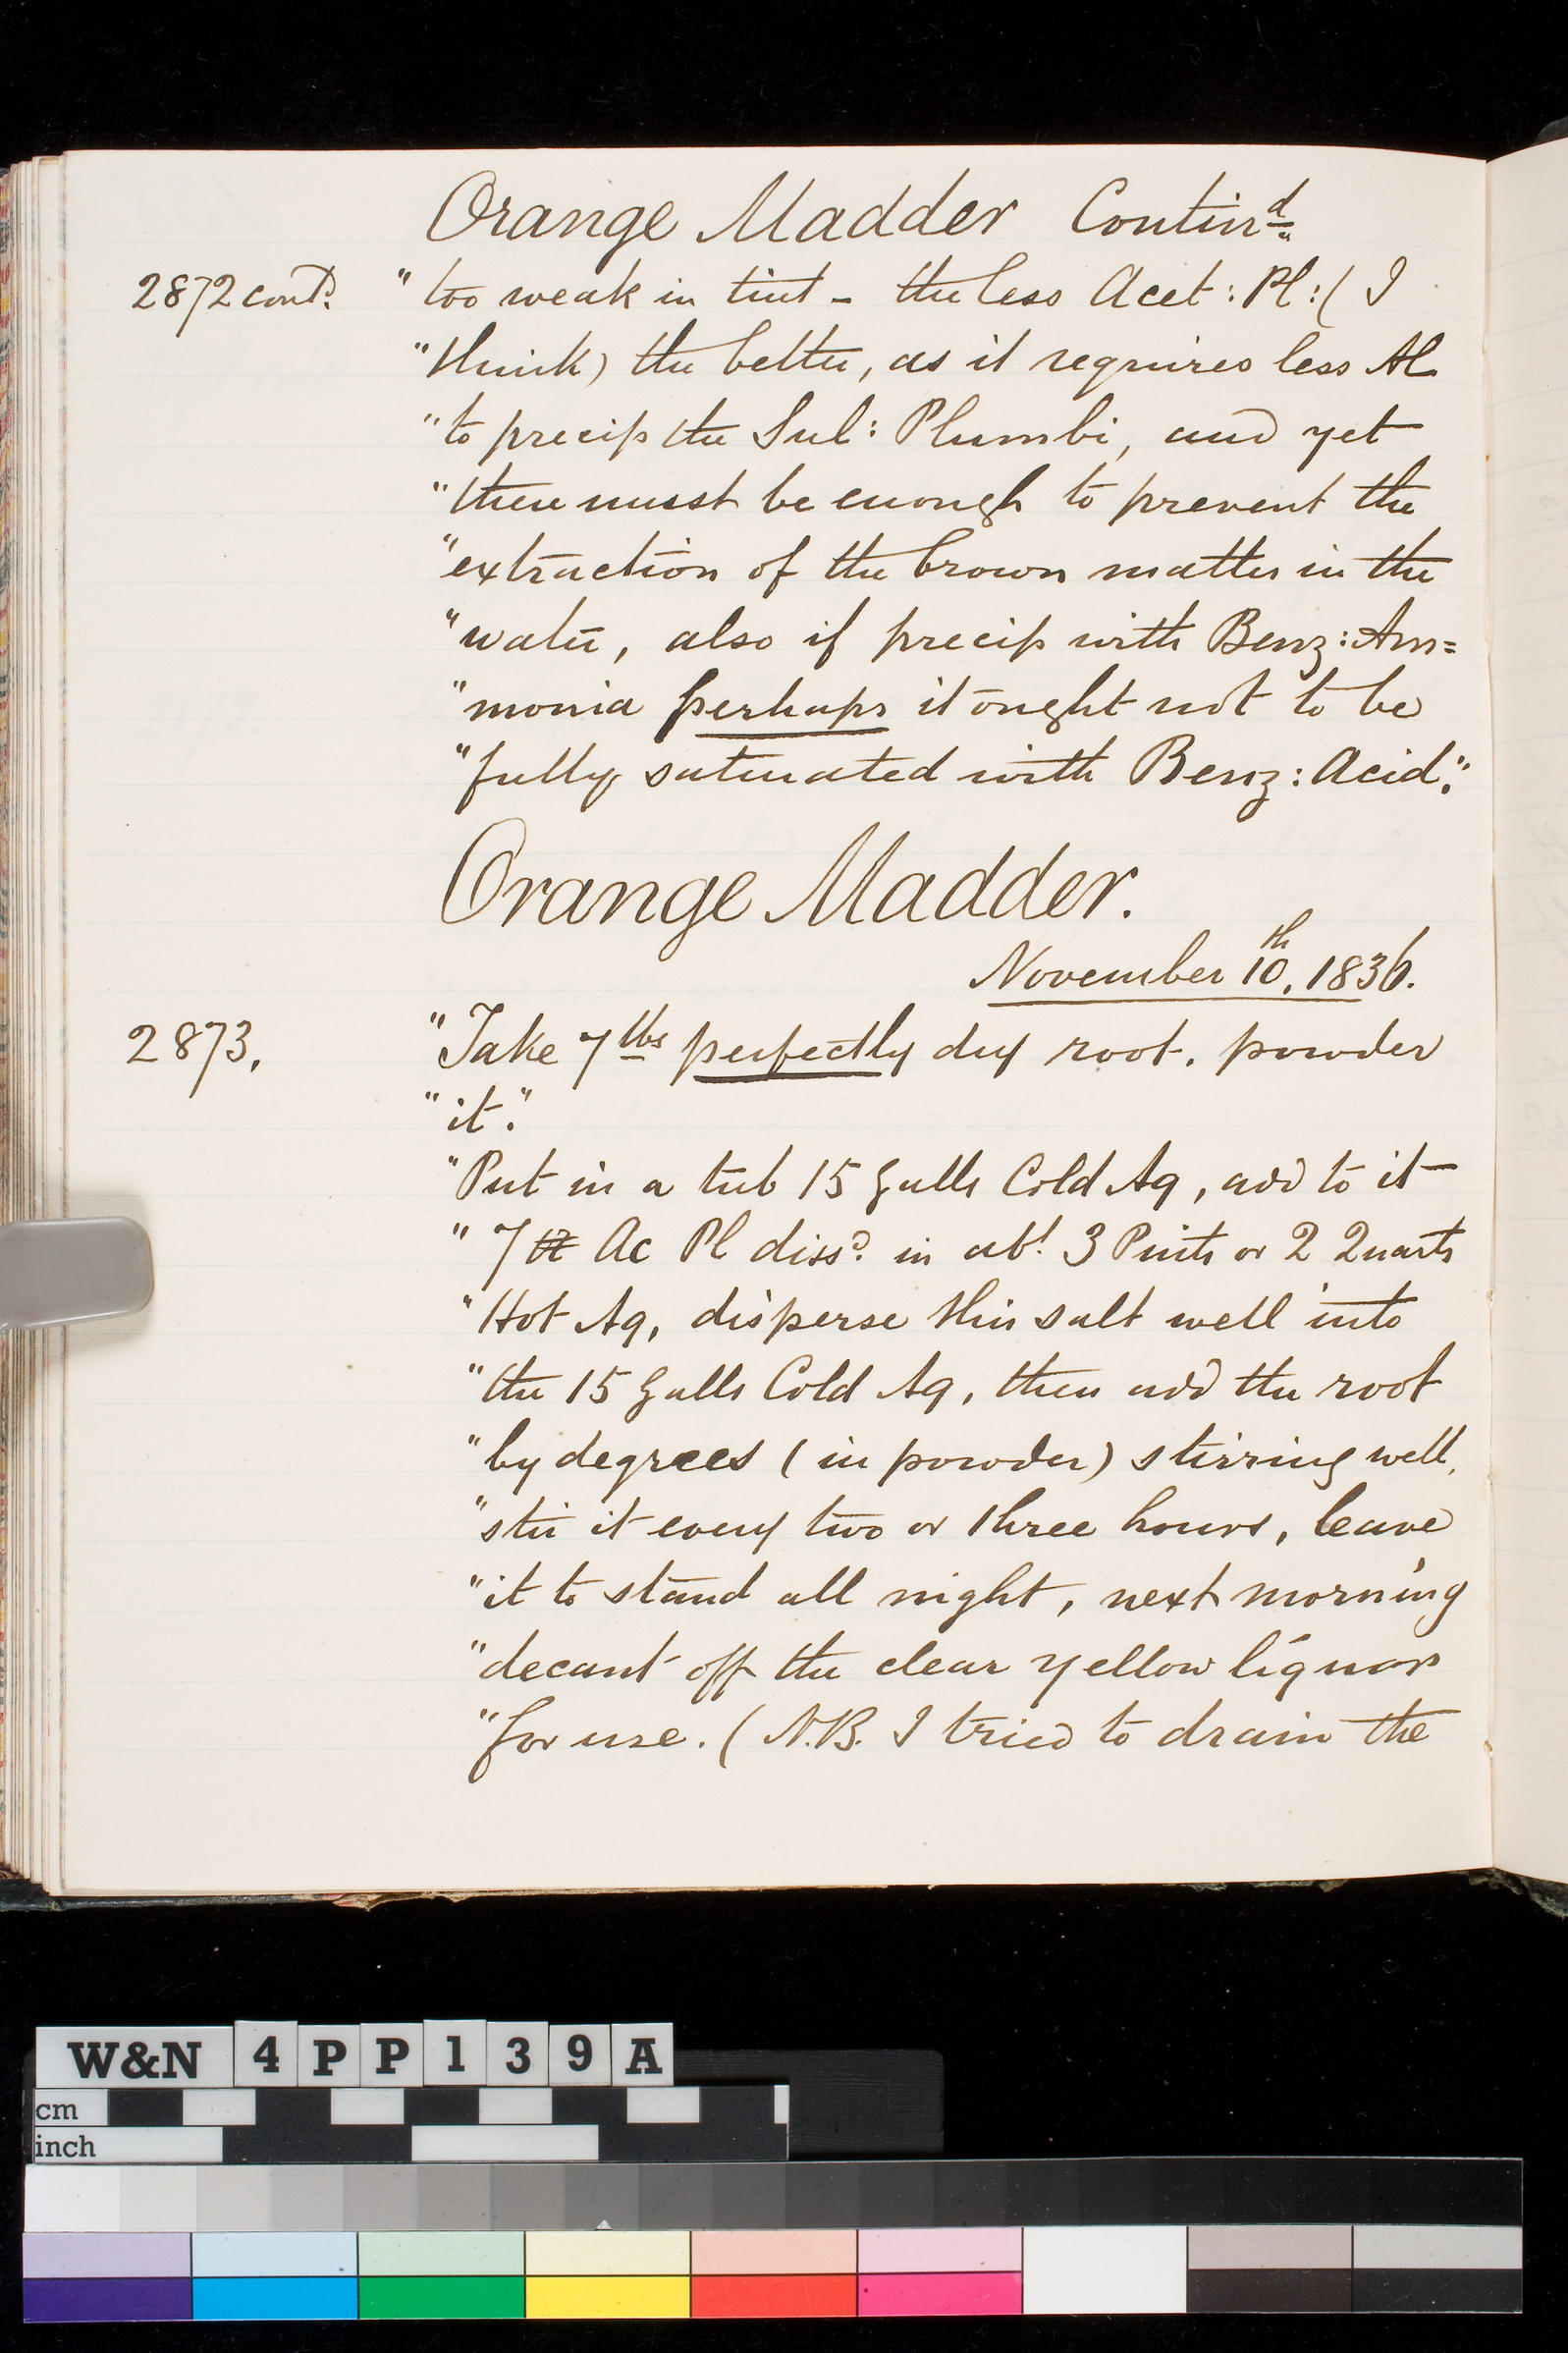 Orange Madder Contin^d
2872 cont^d. " too weak in tint – the less Acet: Pl: ( I
" think) the better, as it requires less Al
" to precip the Sul: Plumbi, and yet
" there musst be enough to prevent the
" extraction of the brown matter in the
" water, also if precip with Benz: Am=
" monia perhaps it ought not to be
" fully saturated with Benz: Acid."
Orange Madder.
November 10^th, 1836.
2873. "Take 7 lbs perfectly dry root. powder
" it."
"Put in a tub 15 Galls Cold Aq, add to it
" 7 ℔ Ac Pl diss^d. in ab^t. 3 Pints or 2 Quarts
" Hot Aq, disperse this salt well into
" the 15 Galls Cold Aq, then add the root
" by degrees ( in powder) stirring well,
" stir it every two or three hours, leave
" it to stand all night, next morning
" decant off the clear yellow liquor
" for use. ( N.B. I tried to drain the
W&N 4PP139A
cm
inch